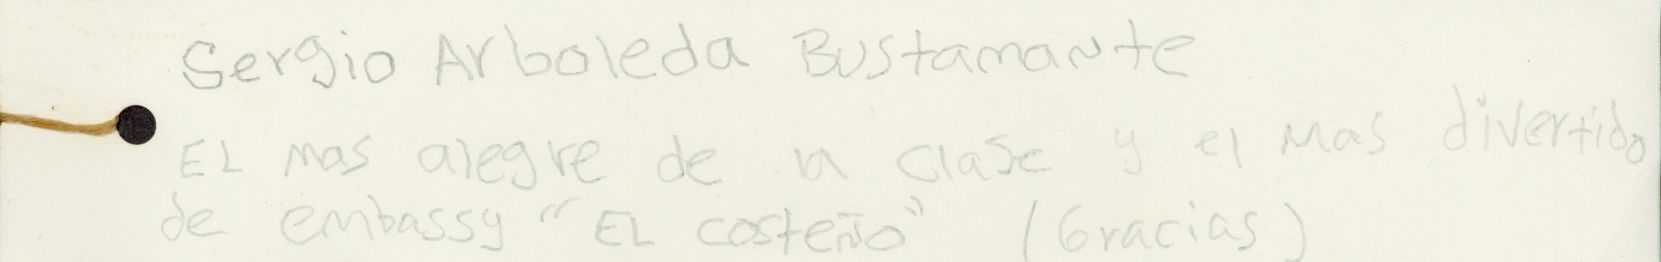 Sergio Arboleda Bustamante
EL mas alegre de la clase y el mas divertido
de embassy "EL costeño" (Gracias)